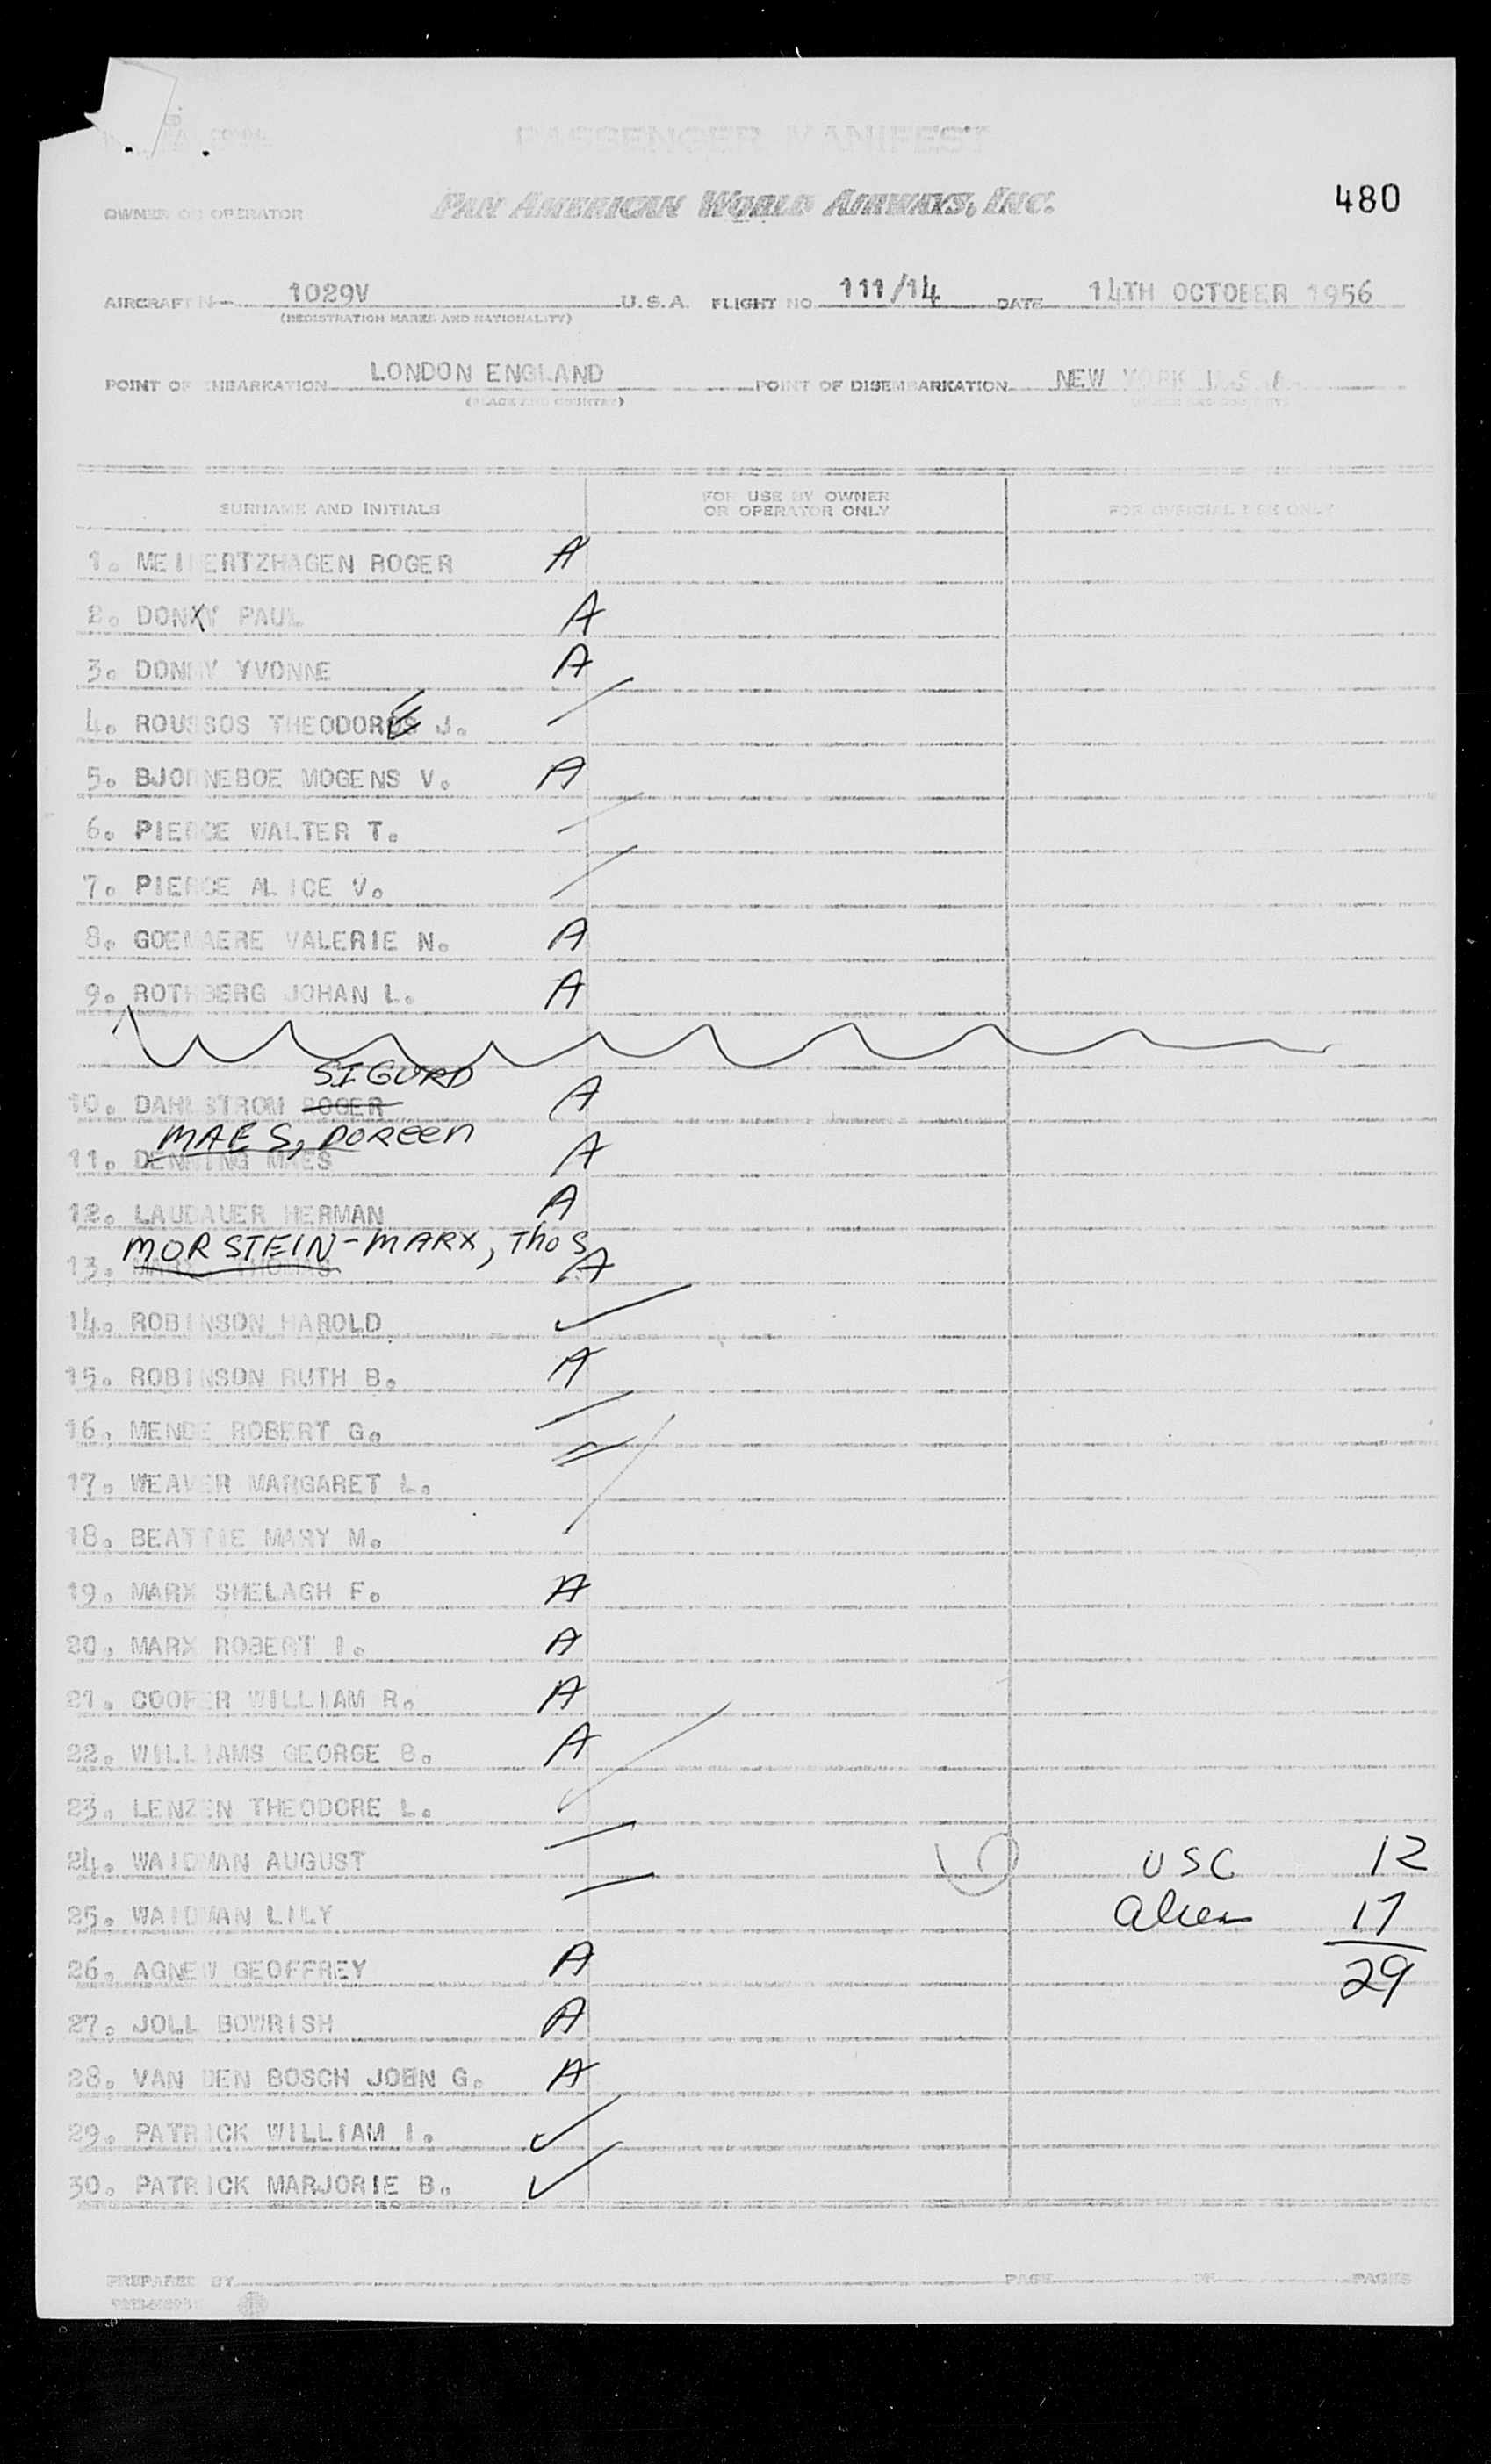 PASSENGER MANIFEST
OWNER OR OPERATOR PAN AMERICAN WORLD AIRWAYS, INC. 480
AIRCRAFT N- 1029V U.S.A. FLIGHT NO 111/14 DATE 14TH OCTOBER 1956
(REGISTRATION MARKS AND NATIONALITY)
POINT OF EMBARKATION LONDON ENGLAND POINT OF DISEMBARKATION NEW YORK U.S.A.
(PLACE AND COUNTRY)
SURNAME AND INITIALS FOR USE BY OWNER OR OPERATOR ONLY FOR OFFICIAL USE ONLY
1. MEINERTZHAGEN ROGER A
2. DONNY PAUL A
3. DONNY YVONNE A
4. ROUSSOS THEODOROS J.
5. BJORNEBOE MOGENS V. A
6. PIERCE WALTER T.
7. PIERCE ALICE V.
8. GOEMAERE VALERIE N. A
9. ROTHBERG JOHAN L. A
SIGURD
10. DAHLSTROM ROGER A
MAES, DOREEN
11. DENNING MAES A
12. LAUDAUER HERMAN A
MORSTEIN-MARX, THOS
13. MARX THOMAS A
14. ROBINSON HAROLD ✓
15. ROBINSON RUTH B. A
16. MENDE ROBERT G.
17. WEAVER MARGARET L.
18. BEATTIE MARY M.
19. MARX SHELAGH F. A
20. MARX ROBERT I. A
21. COOPER WILLIAM R. A
22. WILLIAMS GEORGE B. A
23. LENZEN THEODORE L.
24. WAIDMAN AUGUST USC 12
25. WAIDMAN LILY Alien 17
26. AGNEW GEOFFREY A 29
27. JOLL BOWRISH A
28. VAN DEN BOSCH JOHN G. A
29. PATRICK WILLIAM I. ✓
30. PATRICK MARJORIE B. ✓
PREPARED BY PAGE OF PAGES